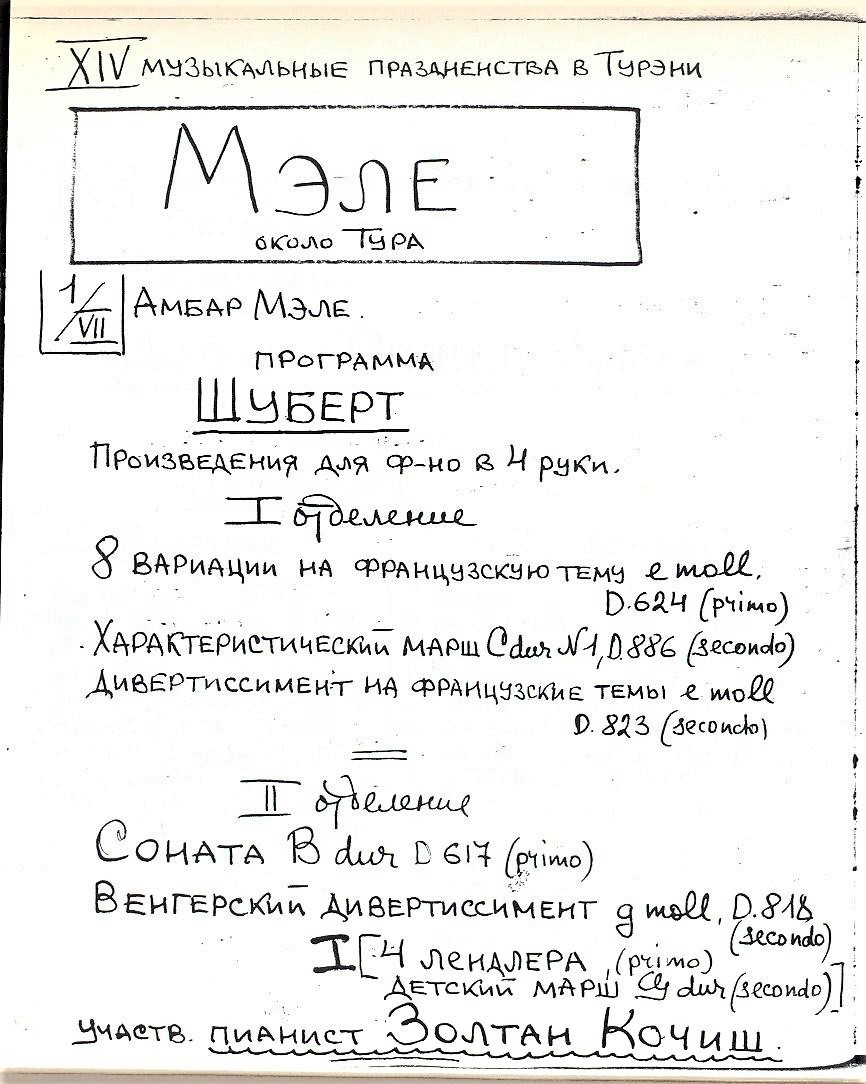 XIV МУЗЫКАЛЬНЫЕ ПРАЗДНЕНСТВА В ТУРЭНИ
МЭЛЕ
ОКОЛО ТУРА
1/VII АМБАР МЭЛЕ.
ПРОГРАММА
ШУБЕРТ
ПРОИЗВЕДЕНИЯ ДЛЯ Ф-НО В 4 РУКИ.
I отделение
8 ВАРИАЦИИ НА ФРАНЦУЗСКУЮ ТЕМУ e moll.
D.624 (primo)
ХАРАКТЕРИСТИЧЕСКИЙ МАРШ C dur N1, D.886 (secondo)
ДИВЕРТИССИМЕНТ НА ФРАНЦУЗСКИЕ ТЕМЫ e moll
D. 823 (secondo)
II отделение
СОНАТА B dur D 617 (primo)
ВЕНГЕРСКИЙ ДИВЕРТИССИМЕНТ g moll, D.818
(secondo)
I [4 ЛЕНДЛЕРА, (primo)
ДЕТСКИЙ МАРШ G dur (secondo)]
УЧАСТВ. ПИАНИСТ ЗОЛТАН КОЧИШ.